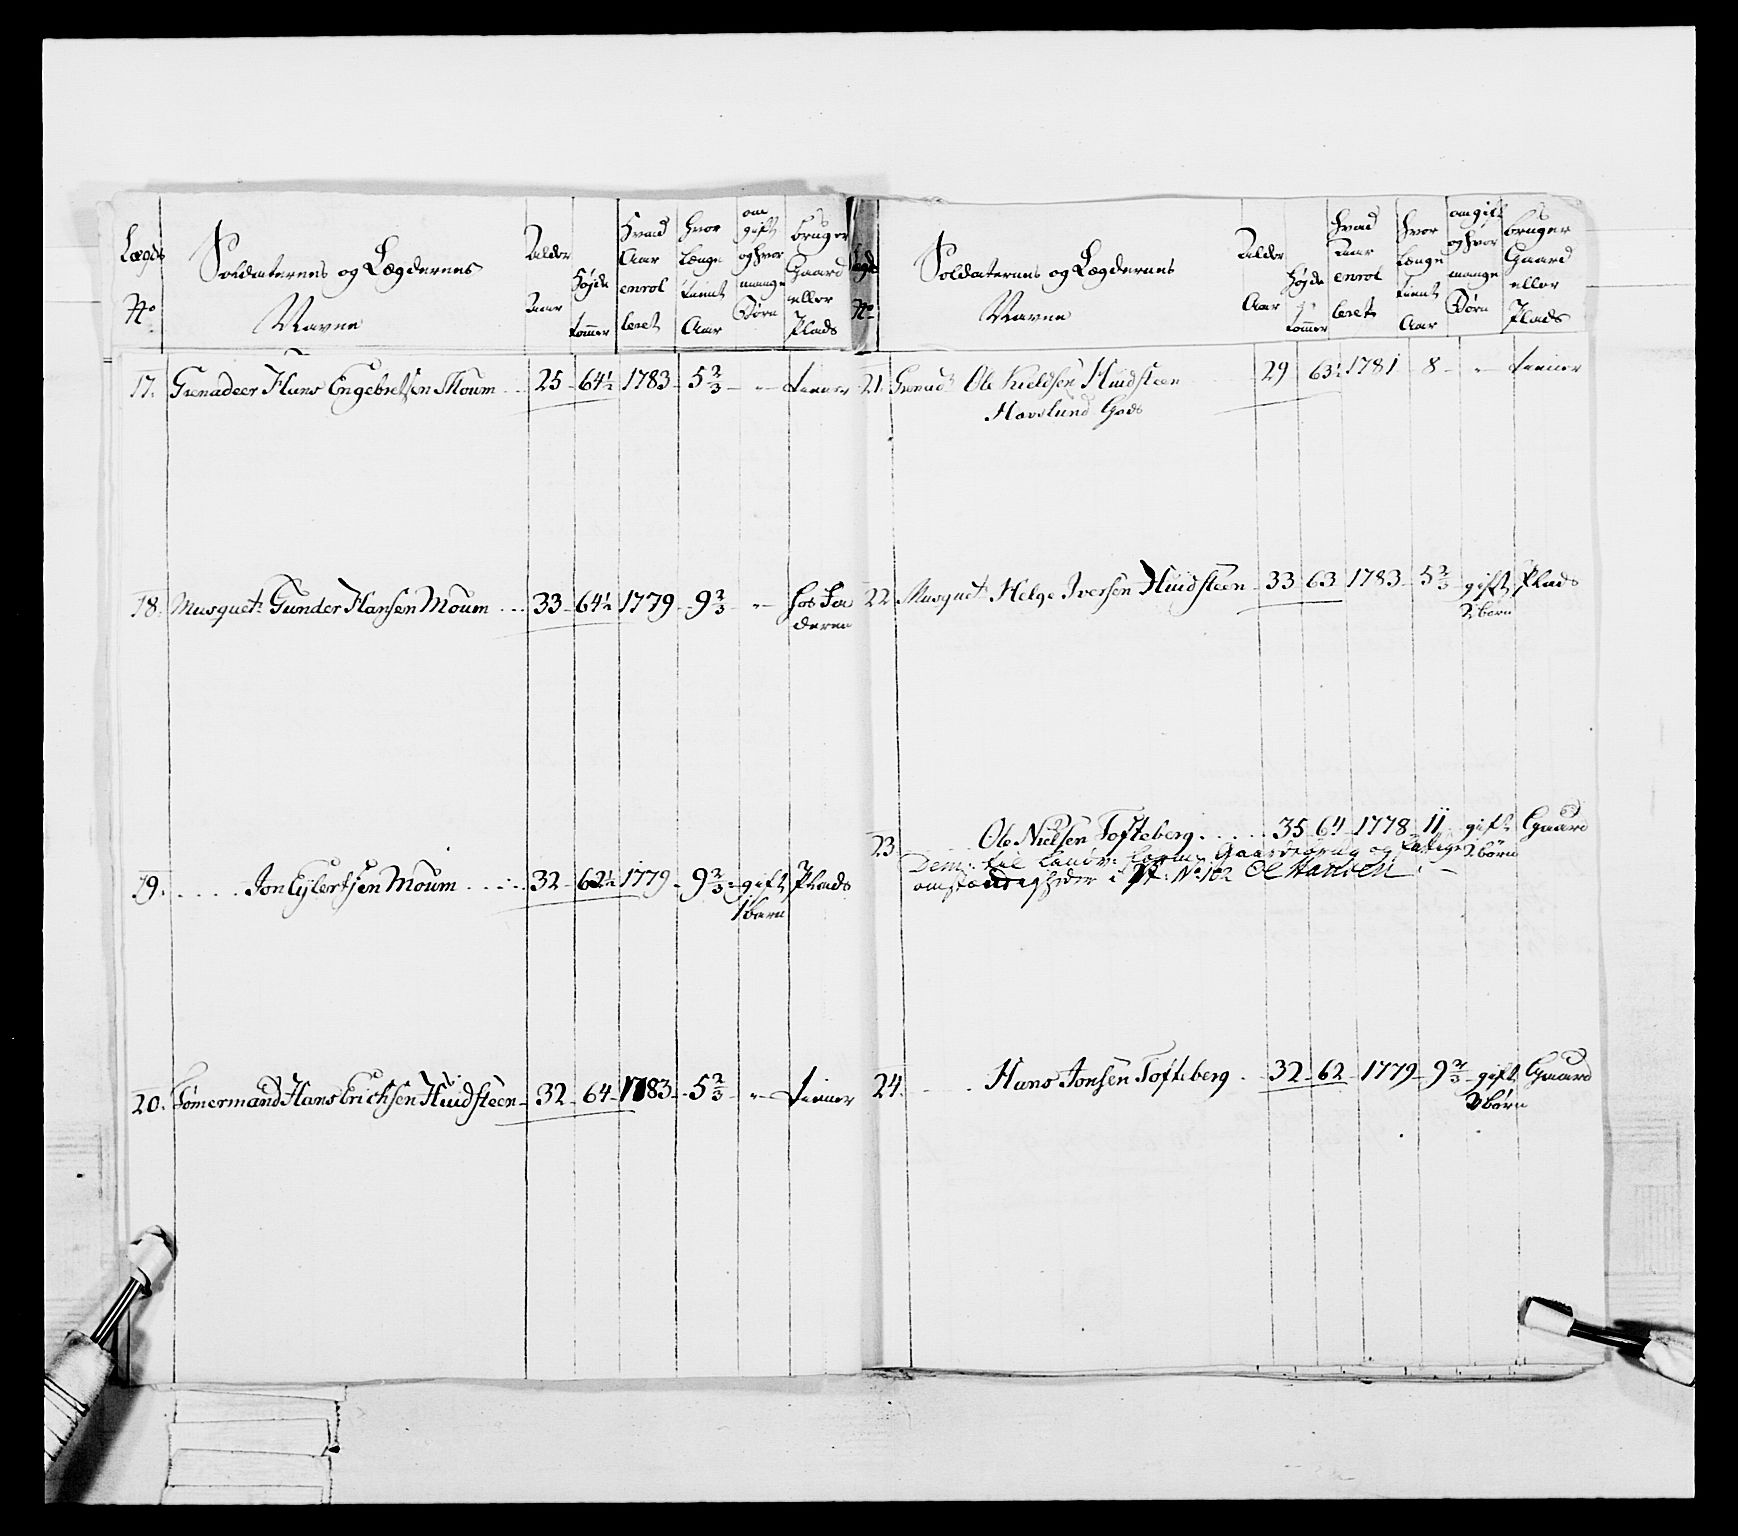 Lægds No
Soldaternes og Lægdernes Navne
Alder Aar
Højde tommer
hvad Aar enrol leret
hvor Længe tient Aar
om gift og hvor mange Børn
bruger Gaard eller Plads
17. Grenadeer Hans Engebretsen Moum 25 64½ 1783 5 2/3 " tiener
18. Musquet: Gunder Hansen Moum 33 64½ 1779 9 2/3 " hos Fa
deren
19. Jon Eylertsen Moum 32 62½ 1779 9 2/3 gift Plads
1 barn
20. Tømermand Hans Erichsen Huidsteen 32 64 1783 5 2/3 " tiener
Lægds No
Soldaternes og Lægdernes Navne
Alder Aar
Højde tommer
hvad Aar enrol leret
hvor Længe tient Aar
om gift og hvor mange Børn
bruger Gaard eller Plads
21. Grenad: Ole Kieldsen Huidsteen 29 63½ 1781 8 " tiener
Havslund Gods
22. Musquet: Helge Iversen Huidsteen 33 63 1783 5 2/3 gift Plads
2 børn
23. Ole Nielsen Tofteberg 35 64 1778 11 gift Gaard
2 børn
Dem: til Landv: form: Gaardebrug og
omstændigheder i St: No 102 Ol Hansen
24. Hans Jonsen Tofteberg 32 62 1779 9 2/3 gift Gaard
3 børn